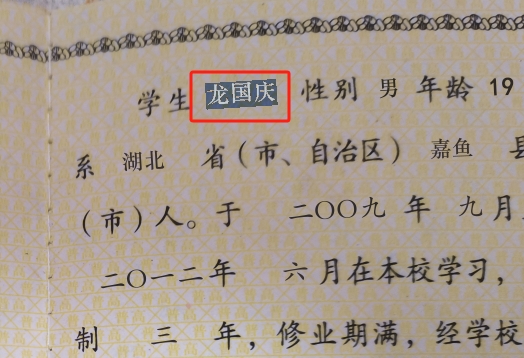 学生 龙国庆 性别 男 年龄 19
系 湖北 省(市、自治区) 嘉鱼 县
(市)人。于 二〇〇九 年 九 月
二〇一二年 六 月在本校学习,
制 三 年,修业期满,经学校